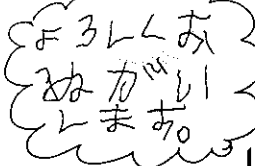 よろしくお
ねがい
します。